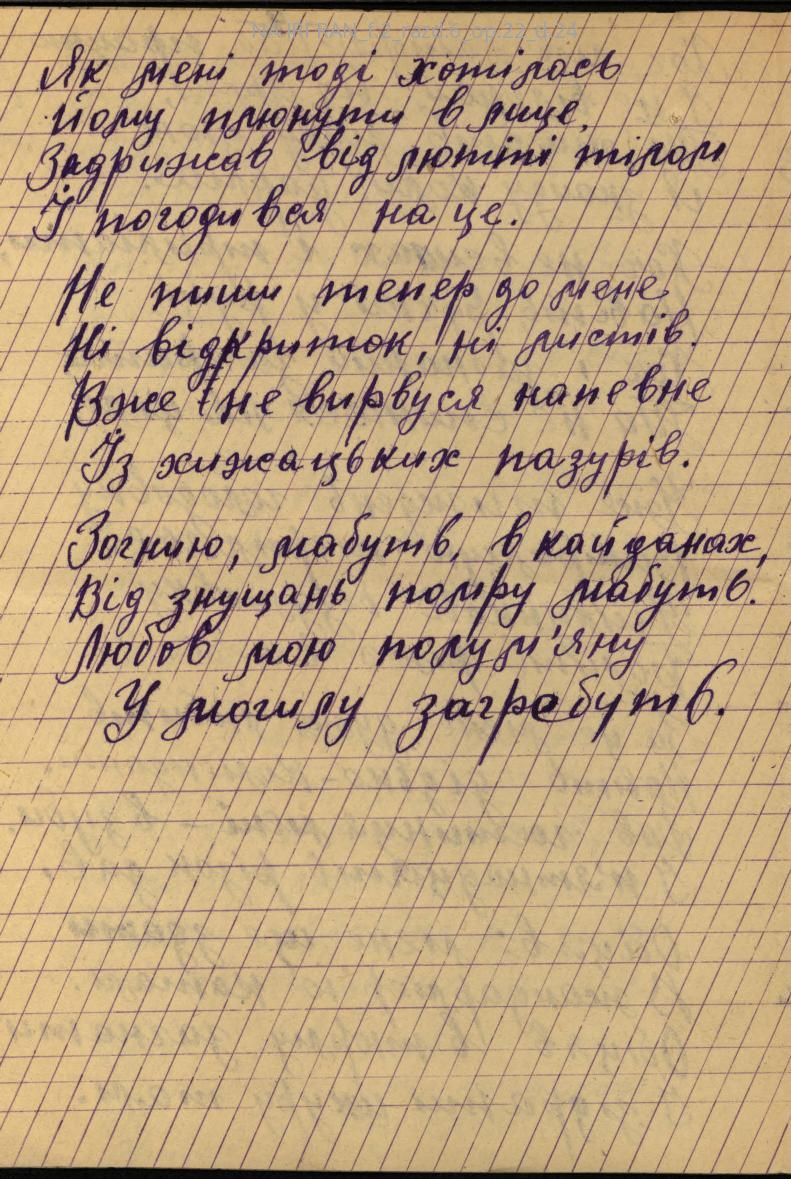 NAIRFRAN_f.2_razd.6_op.22_d.24
Як мені тоді хотілось
Йому плюнути в лице,
Задрижав від лютті тілом
Й погодився на це.
Не пиши тепер до мене
Ні відкриток, ні листів.
Вже не вирвуся напевне
Із хижацьких пазурів.
Зогнию, мабуть, в кайданах,
Від знущань помру мабуть.
Любов мою полум'яну
У могилу загребуть.